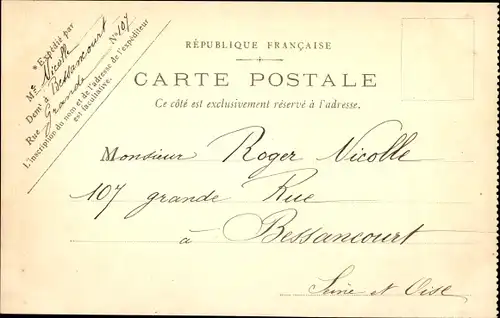 * Expédié par
Mr Nicolle
Demt à Bessancourt
Rue Grande No 107
L'inscription du nom et de l'adresse de l'expéditeur
est facultative.
RÉPUBLIQUE FRANÇAISE
CARTE POSTALE
Ce côté est exclusivement réservé à l'adresse.
Monsieur Roger Nicolle
107 grande Rue
à Bessancourt
Seine et Oise